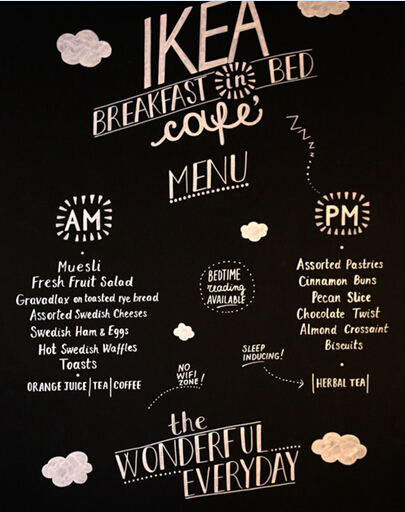 IKEA
BREAKFAST in BED
café
MENU
AM
Muesli
Fresh Fruit Salad
Gravadlax on toasted rye bread
Assorted Swedish Cheeses
Swedish Ham & Eggs
Hot Swedish Waffles
Toasts
ORANGE JUICE | TEA | COFFEE
BEDTIME
reading
AVAILABLE
NO
WIFI
ZONE!
ZZZZ
PM
Assorted Pastries
Cinnamon Buns
Pecan Slice
Chocolate Twist
Almond Crossaint
Biscuits
SLEEP
INDUCING!
| HERBAL TEA |
the
WONDERFUL
EVERYDAY